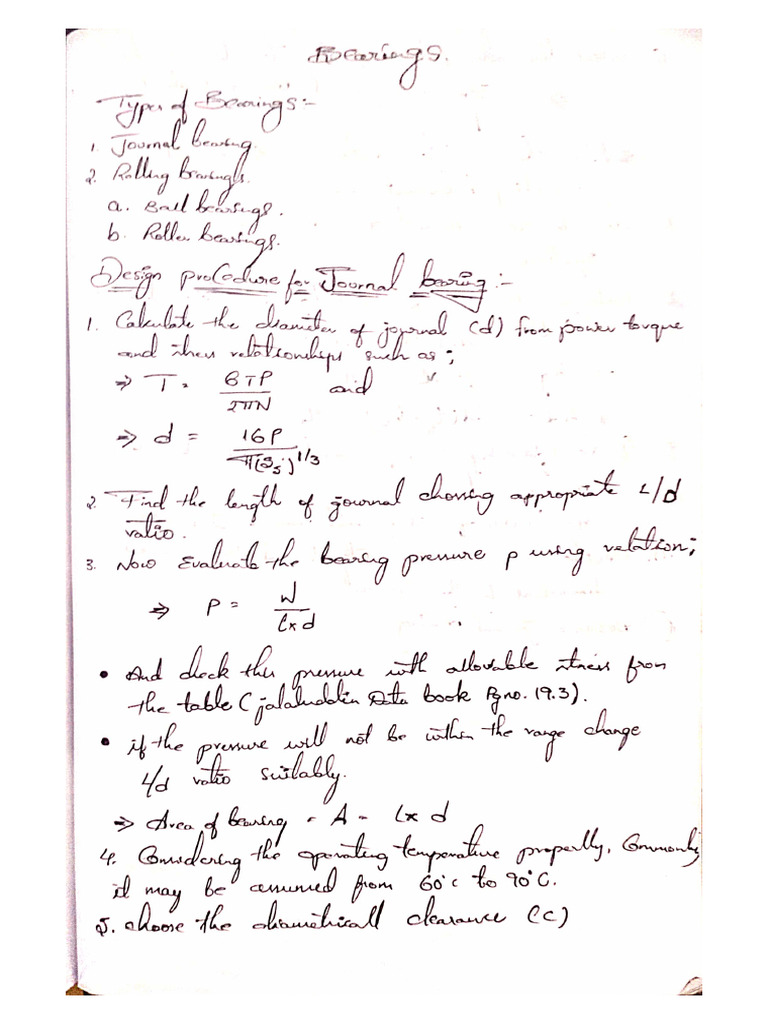 Bearings.
Types of Bearings:-
1. Journal bearing.
2. Rolling bearings.
a. Ball bearings.
b. Roller bearings.
Design proCedure for Journal bearing:-
1. Calculate the diameter of journal (d) from power torque
and their relationships such as;
⇒ T = 6TP / 2πN and
⇒ d = 16P / π(Ss)^1/3
2. Find the length of journal chossing appropriate L/d
ratio.
3. Now Evaluate the bearing pressure p using relation;
⇒ P = W / l×d
• And check this pressure with allowable stress from
the table (jalaluddin Data book Pg no. 19.3).
• if the pressure will not be within the range change
L/d ratio suitably.
⇒ Area of bearing = A = l×d
4. Considering the operating temperature properlly, Commonly
it may be assumed from 60°c to 90°C.
5. choose the diametricall clearance (c)